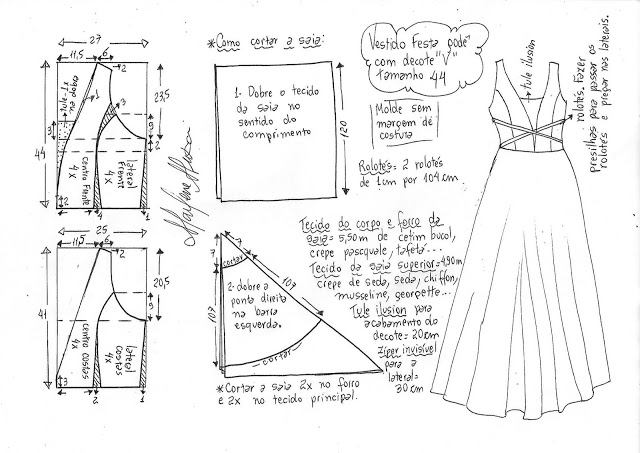 27
11,5
6
2
3
23,5
9
2
3
44
dobra no
centro frente
4x
lateral
frente
4x
2
4
1
25
11,5
6
2
20,5
9
41
centro costas
4x
lateral
costas
4x
3
2
1
*Como cortar a saia:
1- Dobre o tecido
da saia no
sentido do
comprimento
120
7
7
cortar
107
107
2- dobre a
ponta direita
na barra
esquerda.
cortar
*Cortar a saia 2x no forro
e 2x no tecido principal.
Vestido Festa podê
com decote "V"
tamanho 44
Molde sem
margem de
costura
Rolotês= 2 rolotês
de 1cm por 104cm
Tecido do corpo e forro da
saia= 5,50m de cetim bucol,
crepe pasquale, tafetá...
Tecido da saia superior= 4,90m
crepe de seda, seda, chiffon,
musseline, georgette...
Tule ilusion para
acabamento do
decote= 20cm
Zíper invisível
para a
lateral=
30cm
tule ilusion
rolotês. Fazer
presilhas para passar os
rolotês e pregar nas laterais.